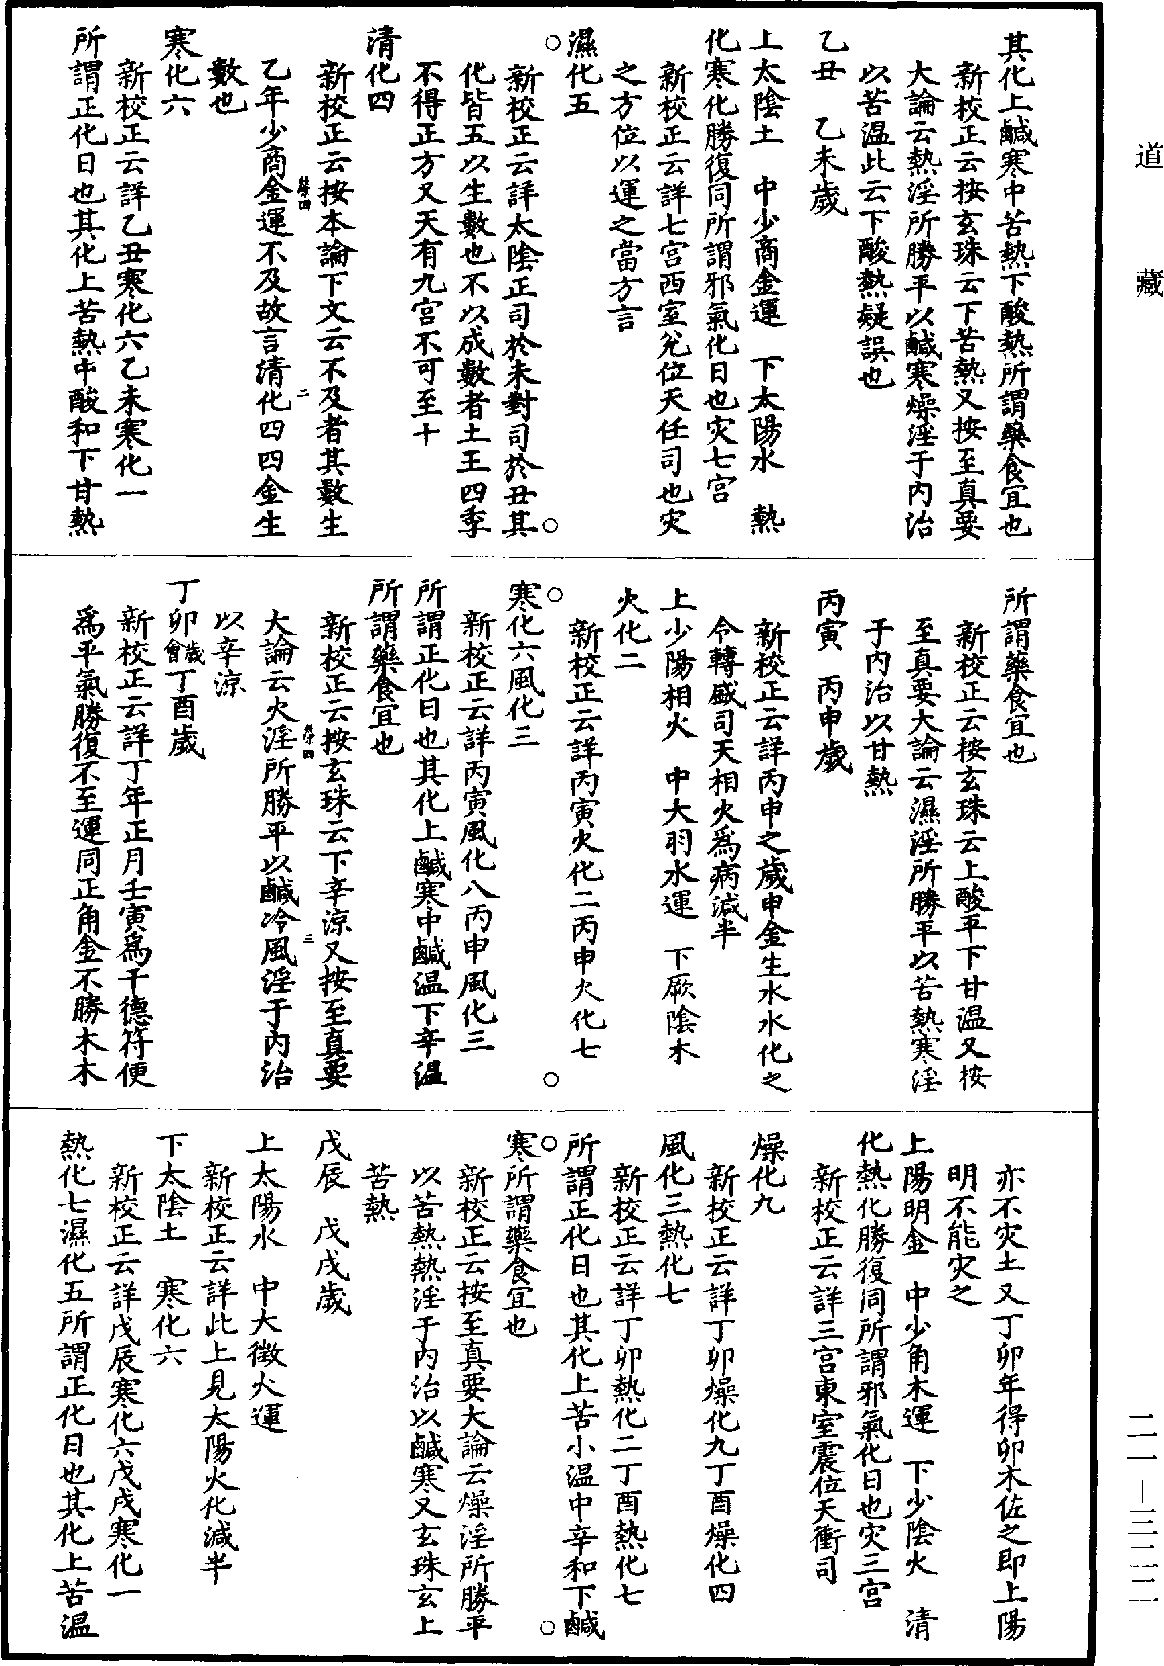 道藏
其化上鹹寒中苦熱下酸熱所謂藥食宜也
新校正云按玄珠云下苦熱又按至真要
大論云熱淫所勝平以鹹寒燥淫于內治
以苦温此云下酸熱疑誤也
乙丑　乙未歲
上太陰土　中少商金運　下太陽水　熱
化寒化勝復同所謂邪氣化日也灾七宮
新校正云詳七宮西室兌位天任司也灾
之方位以運之當方言
濕化五
新校正云詳太陰正司於未對司於丑其
化皆五以生數也不以成數者土王四季
不得正方又天有九宮不可至十
清化四
新校正云按本論下文云不及者其數生
乙年少商金運不及故言清化四四金生
數也
寒化六
新校正云詳乙丑寒化六乙未寒化一
所謂正化日也其化上苦熱中酸和下甘熱
所謂藥食宜也
新校正云按玄珠云上酸平下甘温又按
至真要大論云濕淫所勝平以苦熱寒淫
于內治以甘熱
丙寅　丙申歲
新校正云詳丙申之歲申金生水水化之
令轉盛司天相火爲病減半
上少陽相火　中大羽水運　下厥陰木
火化二
新校正云詳丙寅火化二丙申火化七
寒化六風化三
新校正云詳丙寅風化八丙申風化三
所謂正化日也其化上鹹寒中鹹温下辛温
所謂藥食宜也
新校正云按玄珠云下辛涼又按至真要
大論云火淫所勝平以鹹冷風淫于內治
以辛涼
丁卯歲會丁酉歲
新校正云詳丁年正月壬寅爲干德符便
爲平氣勝復不至運同正角金不勝木木
亦不灾土又丁卯年得卯木佐之即上陽
明不能灾之
上陽明金　中少角木運　下少陰火　清
化熱化勝復同所謂邪氣化日也灾三宮
新校正云詳三宮東室震位天衝司
燥化九
新校正云詳丁卯燥化九丁酉燥化四
風化三熱化七
新校正云詳丁卯熱化二丁酉熱化七
所謂正化日也其化上苦小温中辛和下鹹
寒所謂藥食宜也
新校正云按至真要大論云燥淫所勝平
以苦熱熱淫于內治以鹹寒又玄珠玄上
苦熱
戊辰　戊戌歲
上太陽水　中大徵火運
新校正云詳此上見太陽火化減半
下太陰土　寒化六
新校正云詳戊辰寒化六戊戌寒化一
熱化七濕化五所謂正化日也其化上苦温
二一—三二二